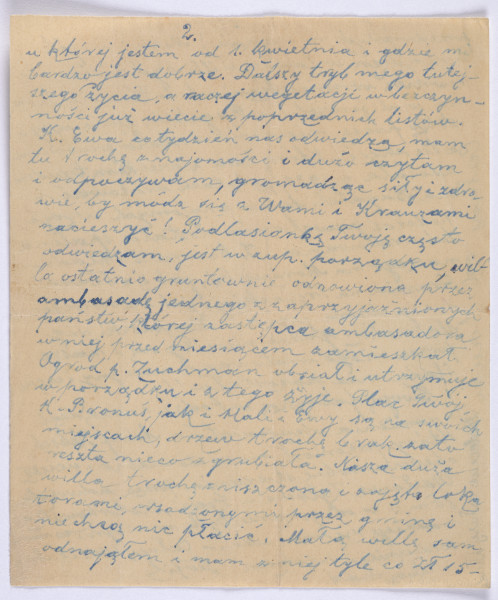 2.
u której jestem od 1. kwietnia i gdzie mi
bardzo jest dobrze. Dalszy tryb mego tutej-
szego życia, a raczej wegetacji w bezczyn-
ności już wiecie z poprzednich listów.
K. Ewa co tydzień nas odwiedza, mam
tu trochę znajomości i dużo czytam
i odpoczywam, gromadząc siły i zdro-
wie, by módz się z Wami i Krauzami
nacieszyć! Podlasiankę Twoją często
odwiedzam, jest w zup. porządku, wil-
la ostatnio gruntownie odnowiona przez
ambasadę jednego z zaprzyjaźnionych
państw, której zastępca ambasadora
w niej przed miesiącem zamieszkał
Ogród p. Zuchman obsiał i utrzymuje
w porządku i z tego żyje. Plac Twój
K. Bronuś, jak i Hali i Ewy są na swoich
miejscach, drzew trochę brak, zato
reszta nieco zgrubiała. Nasza duża
willa trochę zniszczona i zajęta loka
torami, wsadzonymi przez gminę i
nie chcą nic płacić. Małą willę sam
odnająłem i mam z niej tyle co Zł 15-